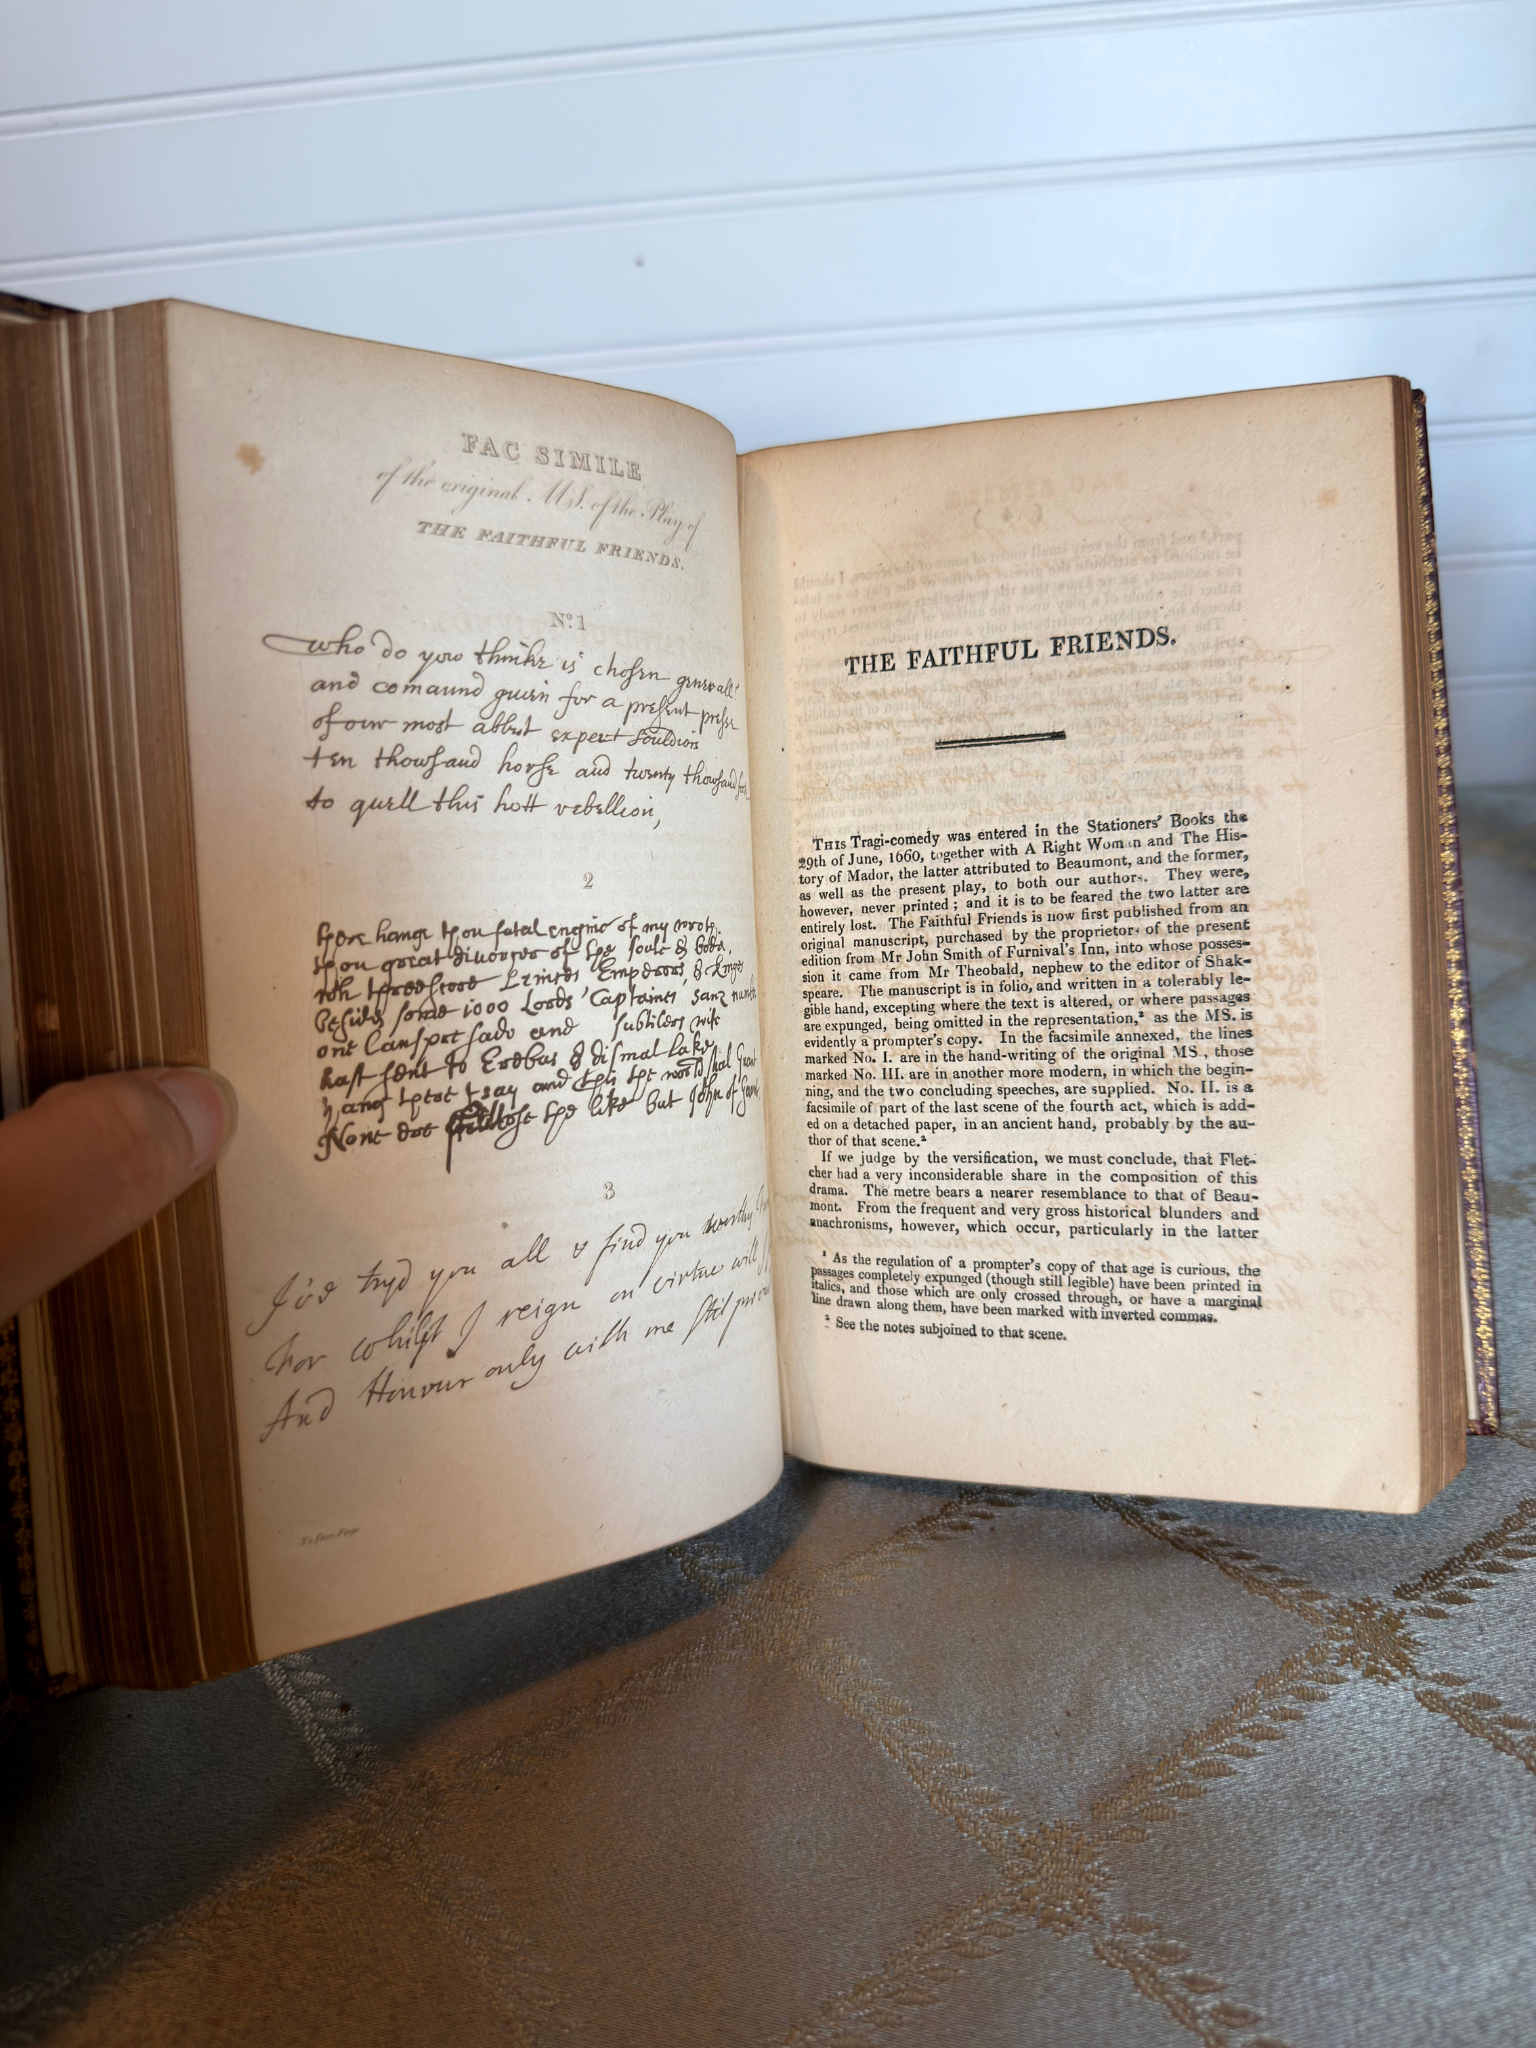 FAC SIMILE
of the original MS. of the Play of
THE FAITHFUL FRIENDS.
No. 1
who do you thinke is chosen generall
and comaund given for a present presse
of our most ablest expert souldiors
ten thousand horse and twenty thousand foot
to quell this hott rebellion,
2
there hange thou fatal engine of my
thou great divorser of the soule & bodie.
with threescore Princes Emperors & kinges
besides some 1000 Lords Captaines sanz numb
one and subtileors wife
hast sent to Erebus & dismal Lake
say and this the world shal
None doe the like but John of
3
I've try'd you all & find you worthy
For whilst I reign on virtue will
And Honour only with me stil
To face Page
THE FAITHFUL FRIENDS.
THIS Tragi-comedy was entered in the Stationers' Books the
29th of June, 1660, together with A Right Woman and The His-
tory of Mador, the latter attributed to Beaumont, and the former,
as well as the present play, to both our authors. They were,
however, never printed; and it is to be feared the two latter are
entirely lost. The Faithful Friends is now first published from an
original manuscript, purchased by the proprietors of the present
edition from Mr John Smith of Furnival's Inn, into whose posses-
sion it came from Mr Theobald, nephew to the editor of Shak-
speare. The manuscript is in folio, and written in a tolerably le-
gible hand, excepting where the text is altered, or where passages
are expunged, being omitted in the representation,¹ as the MS. is
evidently a prompter's copy. In the facsimile annexed, the lines
marked No. I. are in the hand-writing of the original MS., those
marked No. III. are in another more modern, in which the begin-
ning, and the two concluding speeches, are supplied. No. II. is a
facsimile of part of the last scene of the fourth act, which is add-
ed on a detached paper, in an ancient hand, probably by the au-
thor of that scene.²
If we judge by the versification, we must conclude, that Flet-
cher had a very inconsiderable share in the composition of this
drama. The metre bears a nearer resemblance to that of Beau-
mont. From the frequent and very gross historical blunders and
anachronisms, however, which occur, particularly in the latter
¹ As the regulation of a prompter's copy of that age is curious, the
passages completely expunged (though still legible) have been printed in
italics, and those which are only crossed through, or have a marginal
line drawn along them, have been marked with inverted commas.
² See the notes subjoined to that scene.